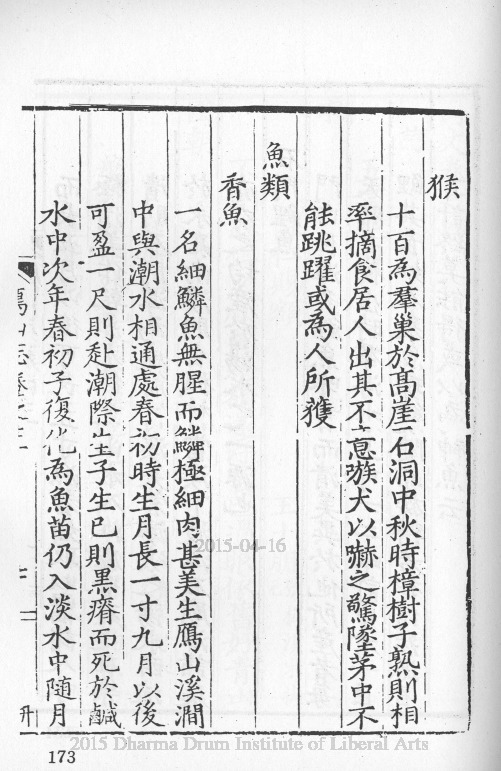 猴
十百為羣巢於高崖石洞中秋時樟樹子熟則相
率摘食居人出其不意嗾犬以嚇之驚墜茅中不
能跳躍或為人所獲
魚類
香魚
一名細鱗魚無腥而鱗極細肉甚美生鴈山溪澗
中與潮水相通處春初時生月長一寸九月以後
可盈一尺則赴潮際生子生已則黑瘠而死於鹹
水中次年春初子復化為魚苗仍入淡水中隨月
山志卷之
173
2015-04-16
2015 Dharma Drum Institute of Liberal Arts